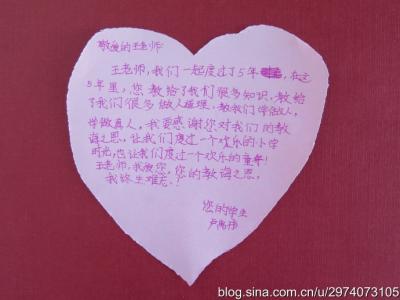 敬爱的王老师
王老师，我们一起度过了5年，在这
5年里，您教给了我们很多知识，教给
了我们很多做人道理，教我们学做人，
学做真人，我要感谢您对我们的教
诲之恩，让我们度过一个欢乐的小学
时光，也让我们度过一个欢乐的童年！
王老师，我爱您，您的教诲之恩，
我终生难忘！
您的学生
卢禹
blog.sina.com.cn/u/2974073105